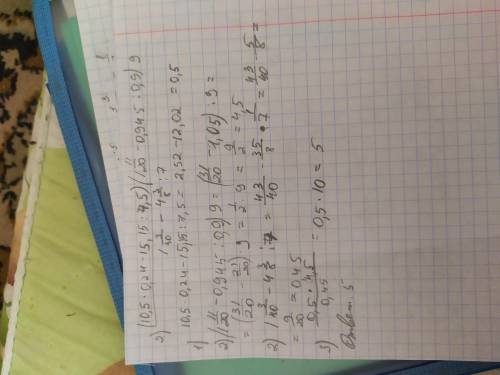 2) (10,5·0,24-15,15:7,5)(1 11/20 - 0,945:0,9) 9
1 3/40 - 4 3/8 : 7
1) 10,5·0,24-15,15:7,5 = 2,52-12,02 = 0,5
2) (1 11/20 - 0,945:0,9) 9 = (31/20 - 1,05) · 9 =
= (31/20 - 21/20) · 9 = 1/2 · 9 = 9/2 = 4,5
2) 1 3/40 - 4 3/8 : 7 = 43/40 - 35/8 · 1/7 = 43/40 - 5/8 =
= 9/20 = 0,45
3) 0,5 · 4,5 / 0,45 = 0,5 · 10 = 5
Ответ. 5